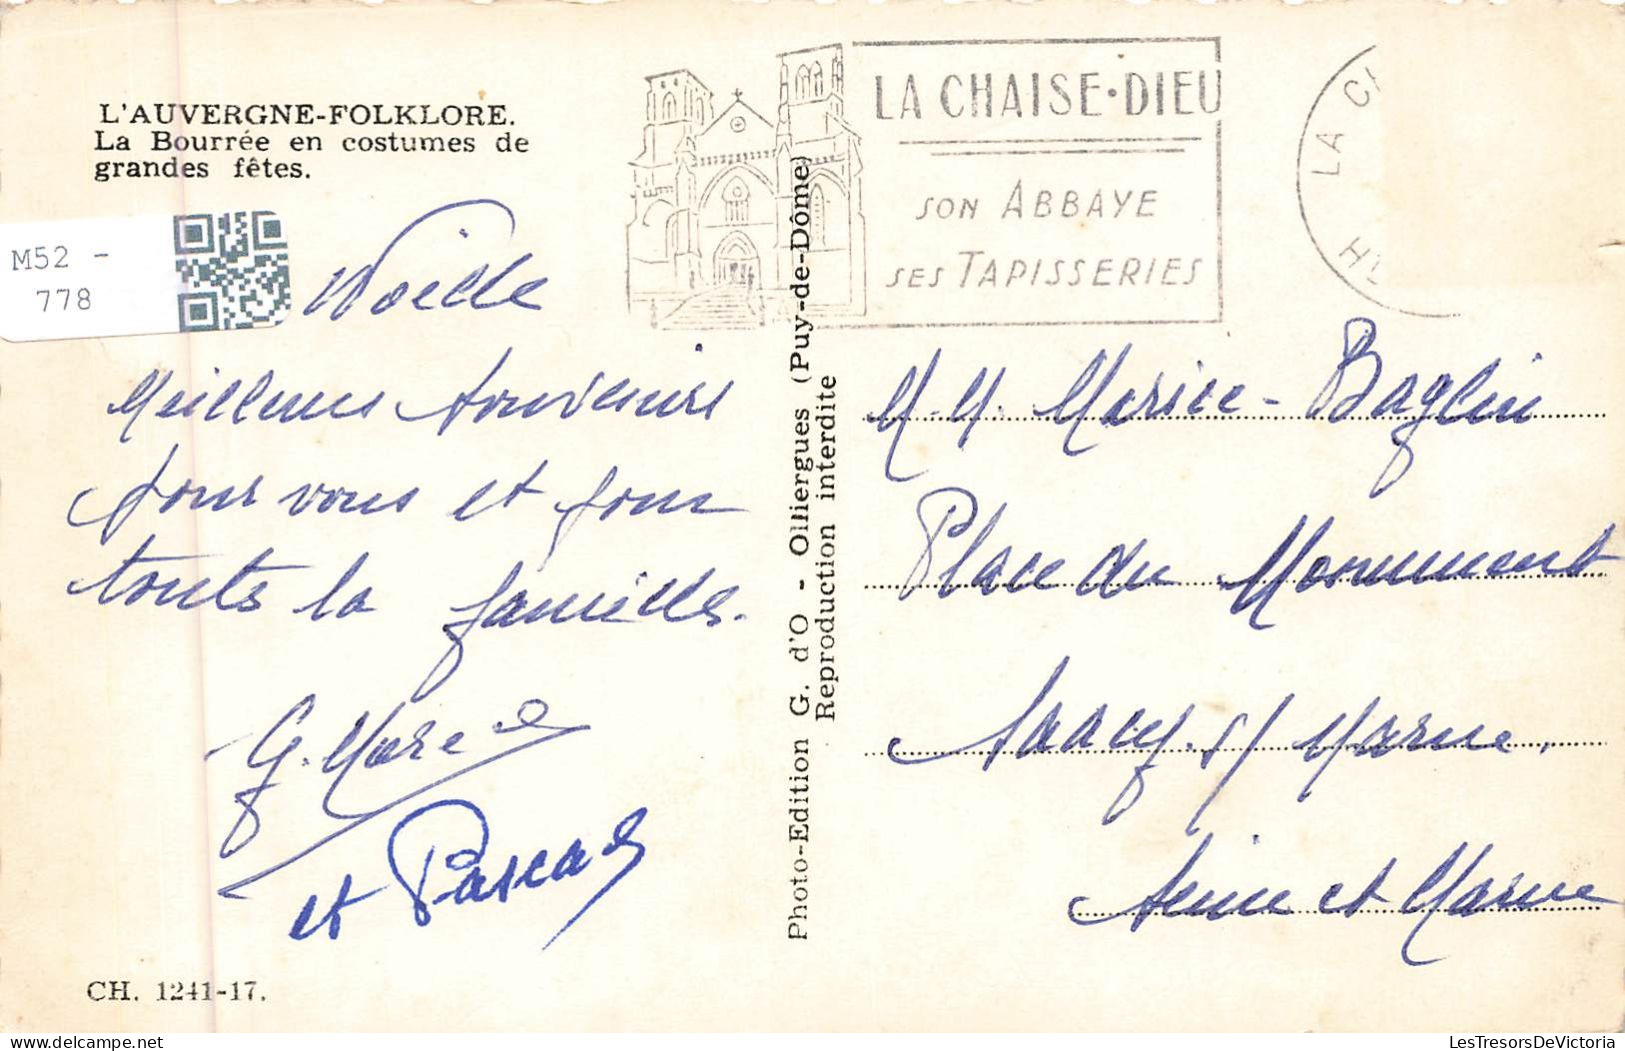 L'AUVERGNE-FOLKLORE.
La Bourrée en costumes de
grandes fêtes.
M52 -
778
LA CHAISE-DIEU
SON ABBAYE
SES TAPISSERIES
LA CH
H
Meilleurs souvenirs
pour vous et pour
toute la famille.
et Pascal
Photo-Edition G. d'O - Olliergues (Puy-de-Dôme)
Reproduction interdite
M.M. Marice - Baglin
Place du Monument
Saacy. s/ Marne.
Seine et Marne
CH. 1241-17.
www.LesTresorsDeVictoria.com